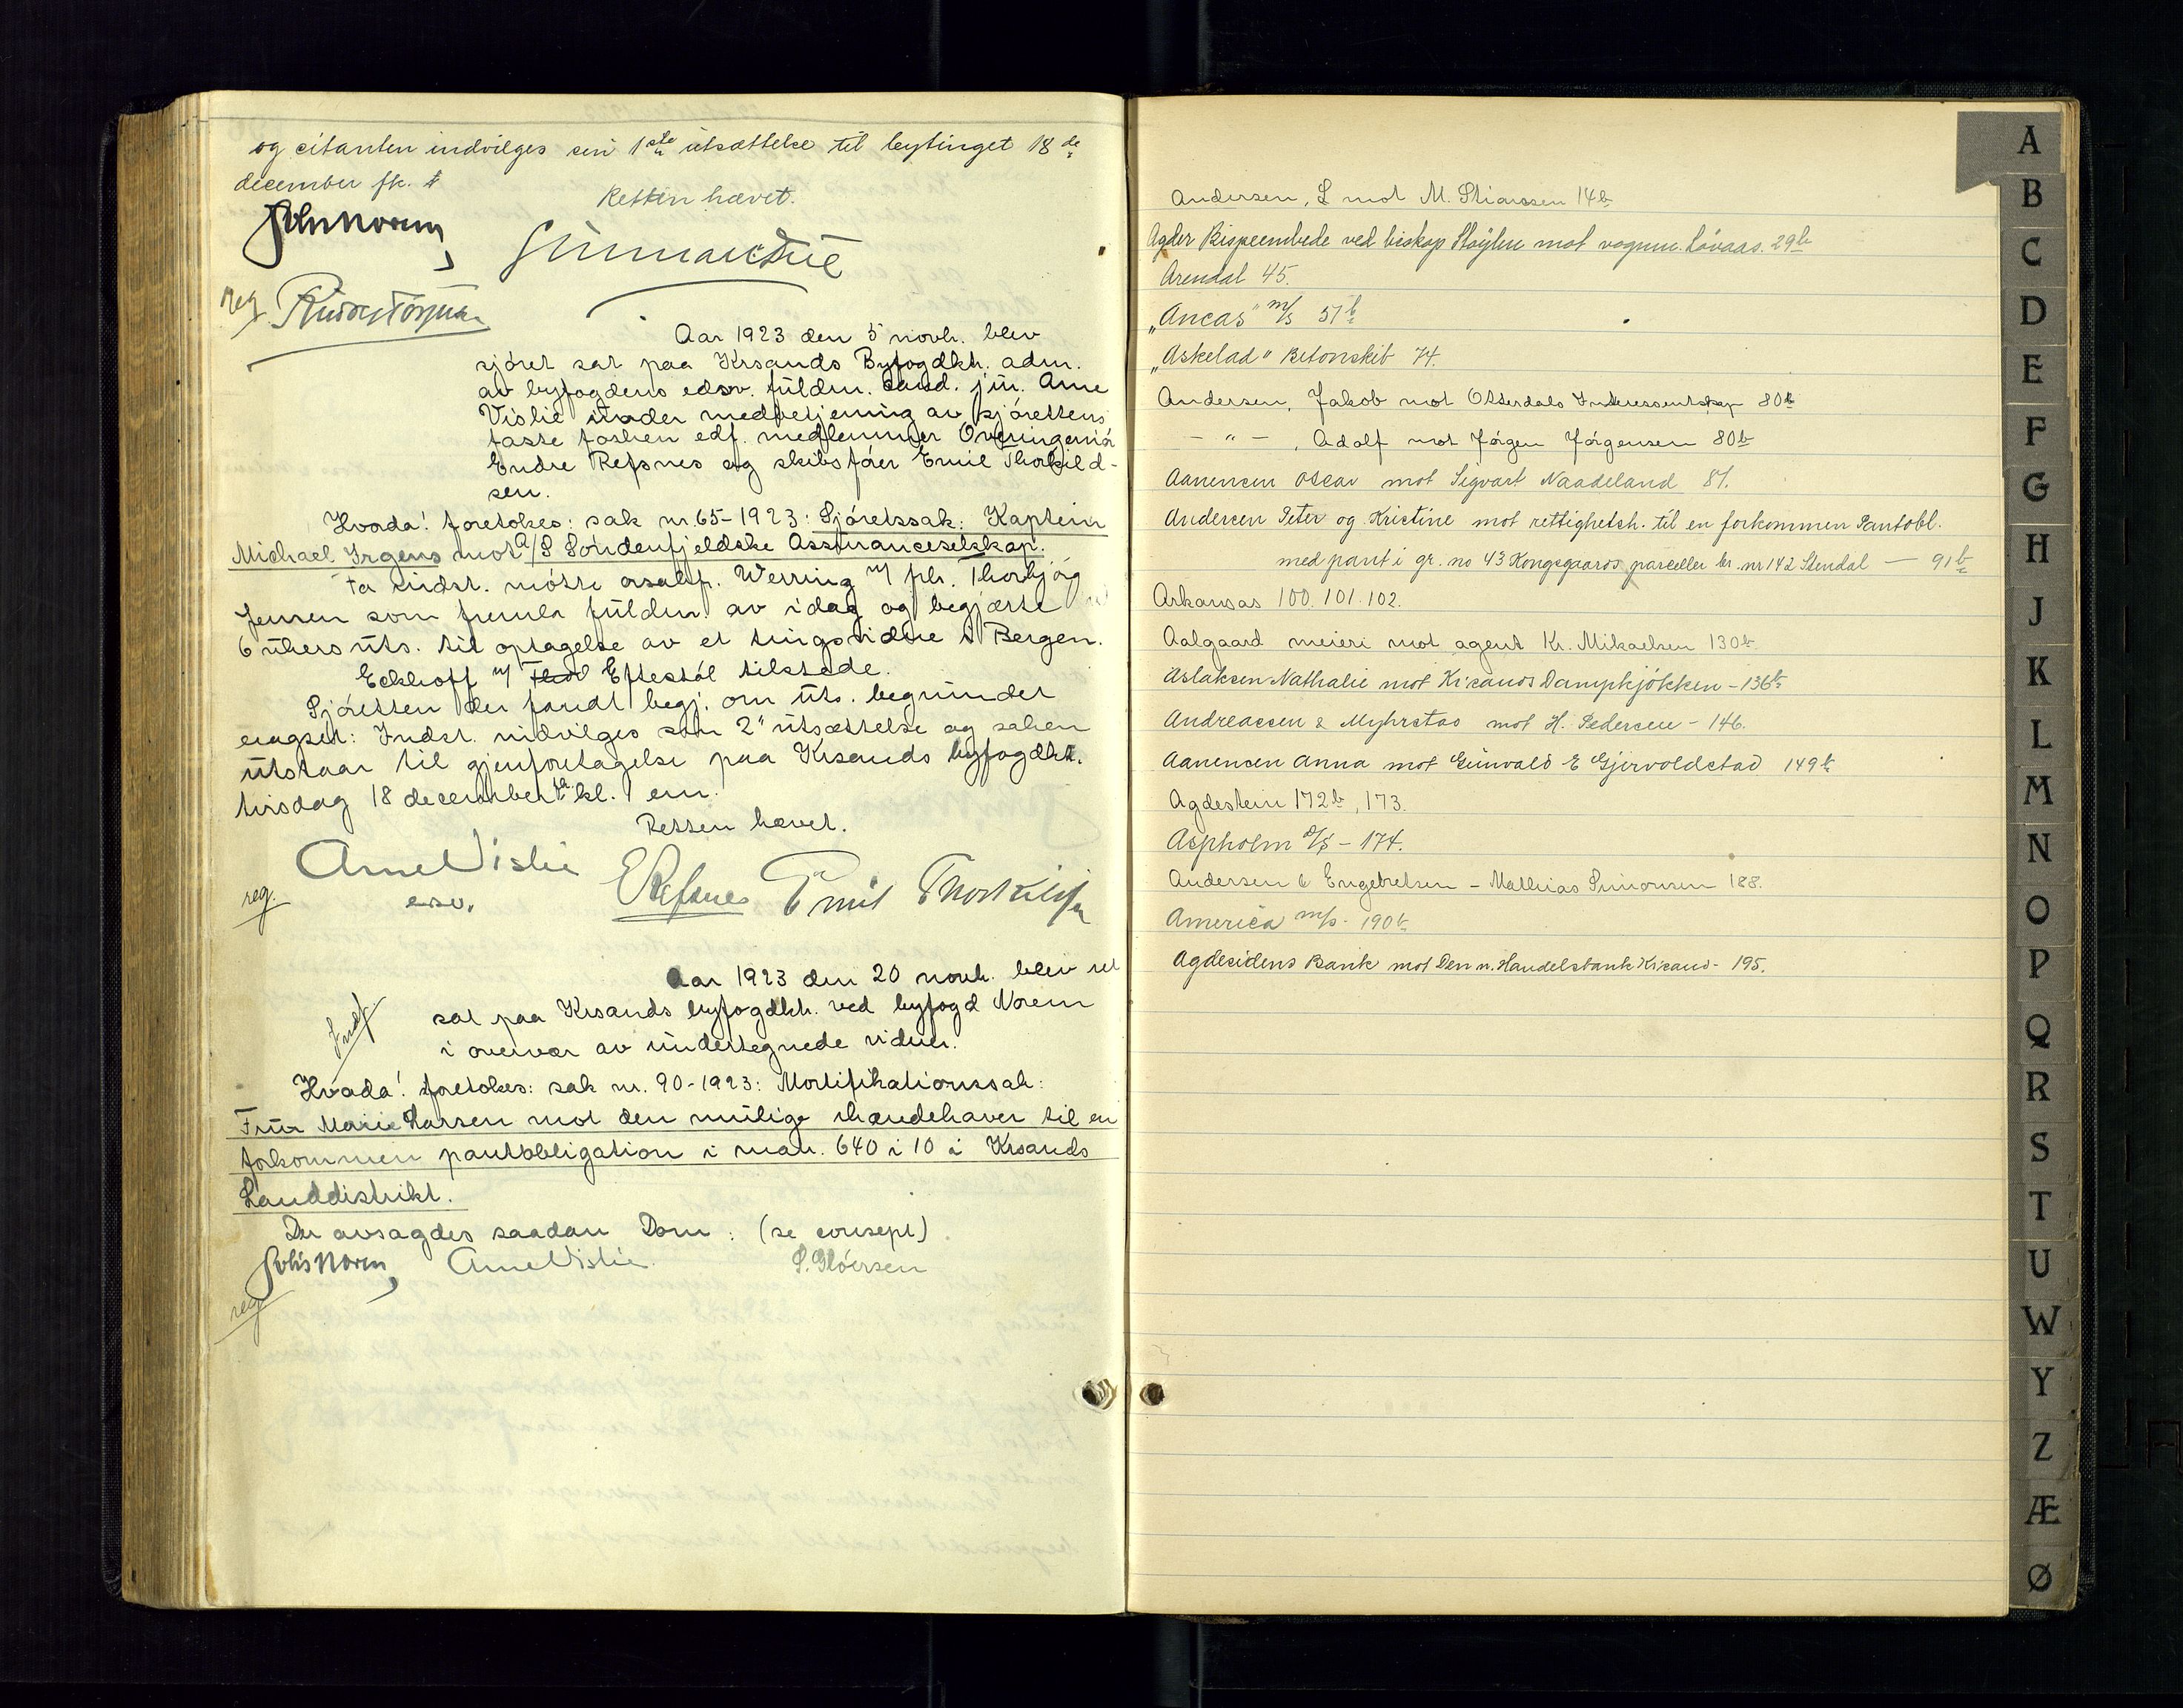 og citanten indvilges sin 1ste utsættelse til bytinget 18de
december fk.
Retten hævet.
Johs Norem
reg.
Aar 1923 den 5 novb. blev
sjøret sat paa Krsands Byfogdkt. adm.
av byfogdens edsv. fuldm. cand. jur. Arne
Vislie under medbetjening av sjørettens
faste
medlemmer Overingeniør
Endre Refsnes og skibsfører Emil Thorkild-
sen.
Hvorda! foretokes: sak nr. 65-1923: Sjøretssak: Kaptein
Michael Irgens mot A/S Søndenfjeldske Assuranceselskap.
For indst. møtte orsakfr. Werring v/ frk. Thorbjørg
Jensen som freml. fuldm. av idag og begjærte
6 ukers uts. til optagelse av et tingsvidne i Bergen.
Eckhoff v/ Eftestøl tilstede.
Sjøretten der fandt begj. om uts. begrundet
eragtet: Indst. indvilges sin 2" utsættelse og saken
utstaar til gjenforetagelse paa Krsands byfogdkt.
tirsdag 18 december kl. 1 em.
Retten hævet.
Arne Vislie
esv.
E Refsnes Emil Thorkildsen
reg.
Aar 1923 den 20 novb. blev ret
sat paa Krsands byfogdkt. ved byfogd Norem
i overvær av undertegnede vidner.
Hvorda! foretokes: sak nr. 90-1923: Mortifikationssak:
Fru Marie Larsen mot den mulige ihændehaver til en
forkommen pantobligation i matr. 640 i 10 i Krsands
Landdistrikt.
Der avsagdes saadan Dom: (se consept)
Johs Norem Arne Vislie S. Gløersen
reg
Andersen, L mot M. Stiansen 14b
Agder Bispeembede ved biskop Støylen mot vognm. Løvaas. 29b
Arendal 45.
"Ancas" m/s 57b
"Askelad" Betonskib 74.
Andersen, Jakob mot Otterdals Interessentskap 80b
- " - , Adolf mot Jørgen Jørgensen 80b
Aanensen Oscar mot Sigvart Naadeland 81.
Andersen Peter og Kristine mot rettighetsh. til en forkommen Pantobl.
med pant i gr. no 43 Kongsgaards parceller br. nr 142 Stendal — 91b
Arkansas 100. 101. 102.
Aalgaard meieri mot agent Kr. Mikaelsen 130b
Aslaksen Nathalie mot Krsands Dampkjøkken - 136b
Andreassen & Myhrstad mot H. Pedersen - 146.
Aanensen Anna mot Gunvald E Gjervoldstad 149b
Agdestein 172b, 173.
Aspholm d/s - 174.
Andersen & Engebretsen - Mathias Simonsen 188.
America m/s - 190b
Agdesidens Bank mot Den n. Handelsbank Krsand - 195.
A
B
C
D
E
F
G
H
J
K
L
M
N
O
P
Q
R
S
T
U
W
Y
Z
Æ
Ø